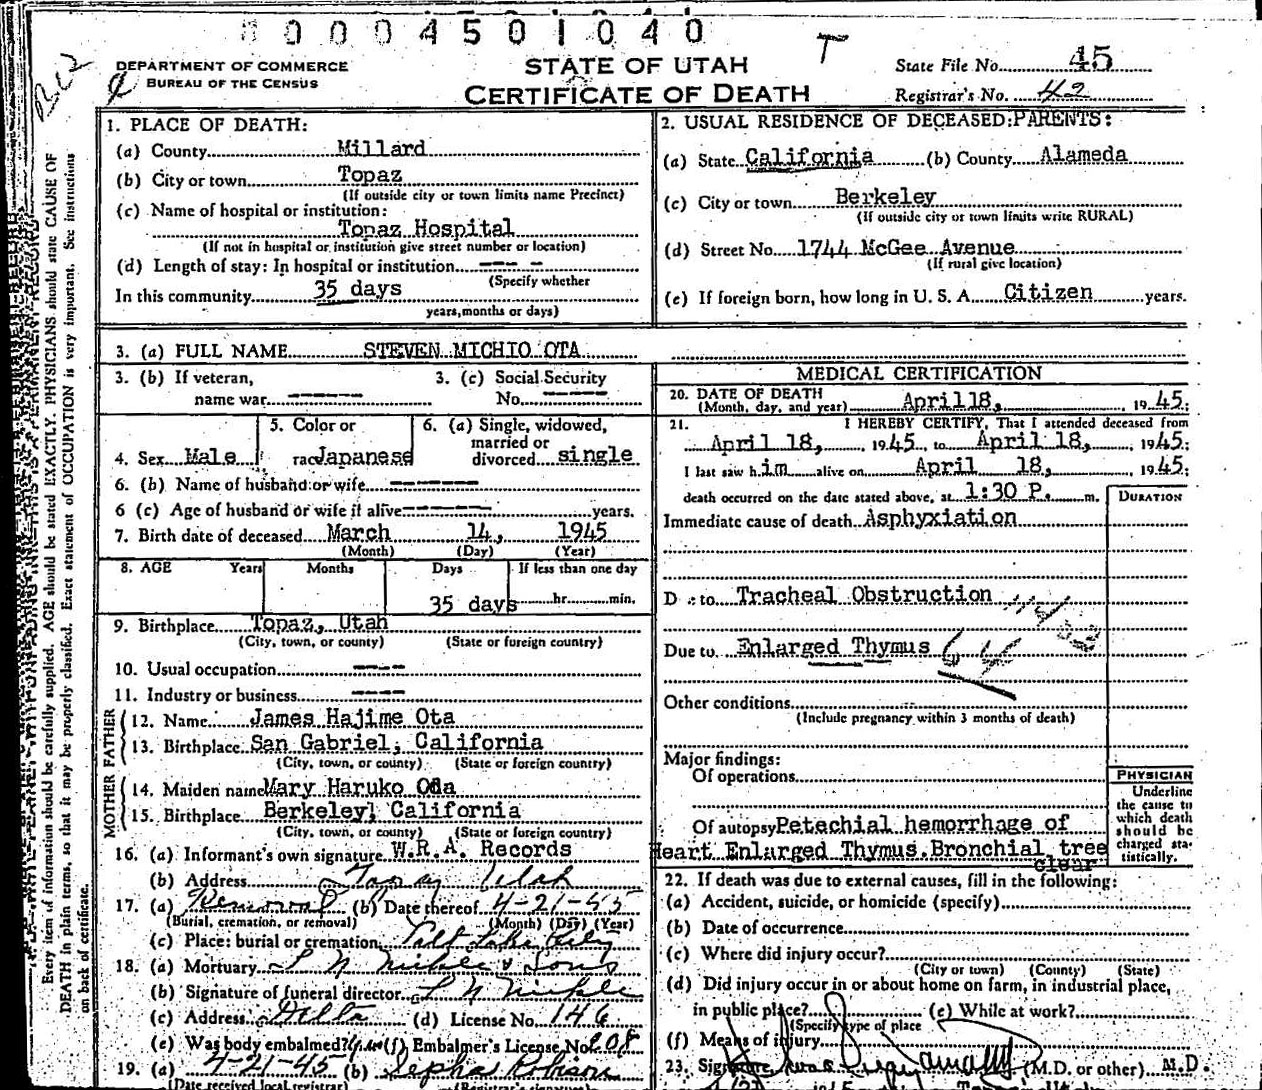 0004501040
T
DEPARTMENT OF COMMERCE
BUREAU OF THE CENSUS
STATE OF UTAH
CERTIFICATE OF DEATH
State File No. 45
Registrar's No. 42
Every item of information should be carefully supplied. AGE should be stated EXACTLY. PHYSICIANS should state CAUSE OF
DEATH in plain terms, so that it may be properly classified. Exact statement of OCCUPATION is very important. See instructions
on back of certificate.
1. PLACE OF DEATH:
(a) County Millard
(b) City or town Topaz
(If outside city or town limits name Precinct)
(c) Name of hospital or institution:
Topaz Hospital
(If not in hospital or institution give street number or location)
(d) Length of stay: In hospital or institution --- -
(Specify whether
In this community 35 days
years, months or days)
2. USUAL RESIDENCE OF DECEASED: PARENTS:
(a) State California (b) County Alameda
(c) City or town Berkeley
(If outside city or town limits write RURAL)
(d) Street No. 1744 McGee Avenue
(If rural give location)
(e) If foreign born, how long in U. S. A. Citizen years.
3. (a) FULL NAME STEVEN MICHIO OTA
3. (b) If veteran, name war -----
3. (c) Social Security No. ----
4. Sex Male
5. Color or race Japanese
6. (a) Single, widowed, married or divorced single
6. (b) Name of husband or wife ------
6 (c) Age of husband or wife if alive ------ years.
7. Birth date of deceased March 14, 1945
(Month) (Day) (Year)
8. AGE Years Months Days If less than one day
35 days hr. min.
9. Birthplace Topaz, Utah
(City, town, or county) (State or foreign country)
10. Usual occupation ----
11. Industry or business ----
FATHER
12. Name James Hajime Ota
13. Birthplace San Gabriel, California
(City, town, or county) (State or foreign country)
MOTHER
14. Maiden name Mary Haruko Oda
15. Birthplace Berkeley, California
(City, town, or county) (State or foreign country)
16. (a) Informant's own signature W.R.A. Records
(b) Address Topaz Utah
17. (a) Removal (b) Date thereof 4-21-45
(Burial, cremation, or removal) (Month) (Day) (Year)
(c) Place: burial or cremation Salt Lake City
18. (a) Mortuary & Sons
(b) Signature of funeral director
(c) Address Delta (d) License No. 146
(e) Was body embalmed? (f) Embalmer's License No. 208
19. (a) 4-21-45 (b)
(Date received local registrar) (Registrar's signature)
MEDICAL CERTIFICATION
20. DATE OF DEATH
(Month, day, and year) April 18, 1945.
21. I HEREBY CERTIFY, That I attended deceased from
April 18, 1945, to April 18, 1945.
I last saw him alive on April 18, 1945.
death occurred on the date stated above, at 1:30 P. m.
DURATION
Immediate cause of death Asphyxiation
D e to Tracheal Obstruction
Due to Enlarged Thymus 64
Other conditions
(Include pregnancy within 3 months of death)
Major findings:
Of operations
Of autopsy Petechial hemorrhage of
Heart Enlarged Thymus. Bronchial tree
clear
PHYSICIAN
Underline
the cause to
which death
should be
charged sta-
tistically.
22. If death was due to external causes, fill in the following:
(a) Accident, suicide, or homicide (specify)
(b) Date of occurrence
(c) Where did injury occur?
(City or town) (County) (State)
(d) Did injury occur in or about home on farm, in industrial place,
in public place? (e) While at work?
(Specify type of place
(f) Means of injury
23. Signature (M.D. or other) M.D.